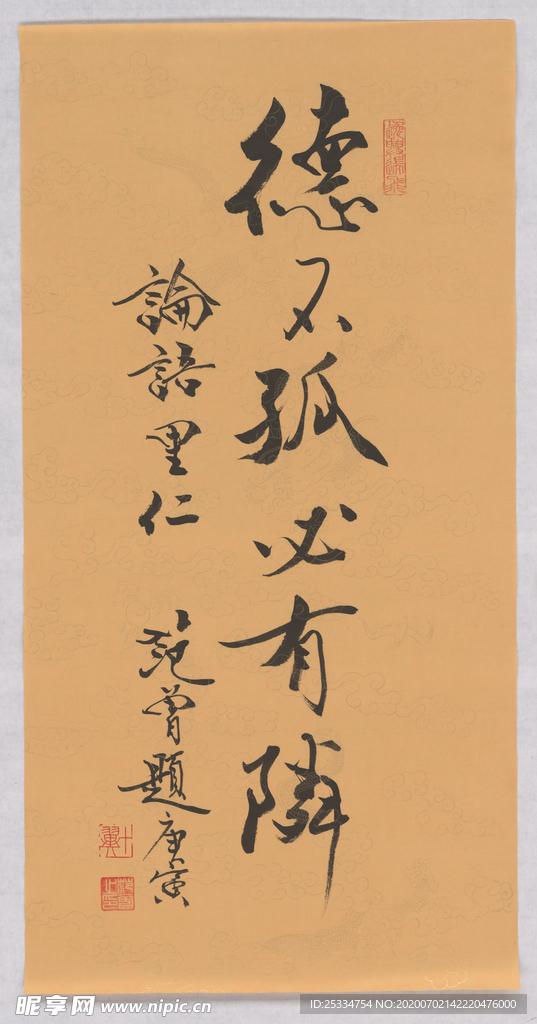 德不孤必有隣
論語里仁 范曾題庚寅
昵享网 www.nipic.cn
ID:25334754 NO:20200702142220476000